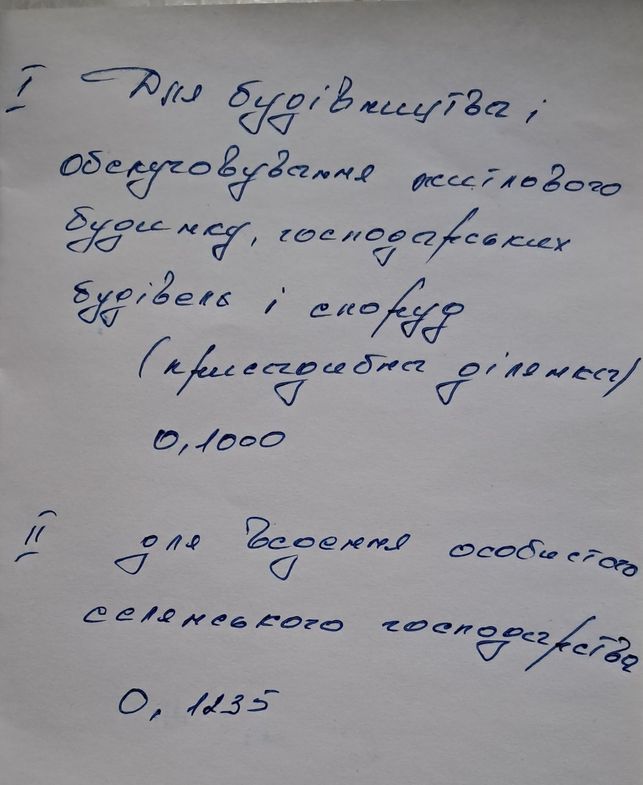 I Для будівництва і
обслуговування житлового
будинку, господарських
будівель і споруд
(присадибна ділянка)
0,1000
II для ведення особистого
селянського господарства
0,1235